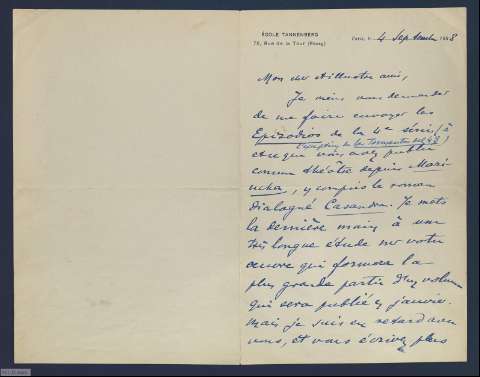 ÉCOLE TANNENBERG
76, Rue de la Tour (Passy)
Paris, le 4 Septembre 1908
Mon cher et illustre ami,
Je viens vous demander
de me faire envoyer les
Episodios de la 4e série (à
l'exception de la Tormenta del 48)
et ce que vous avez publié
comme théâtre depuis Mari-
ucha, y compris le roman
dialogué Casandra. Je mets
la dernière main à une
très longue étude sur votre
œuvre qui formera la
plus grande partie d'un volume
qui sera publié en janvier.
Mais je suis en retard avec
vous, et vous écrivez plus